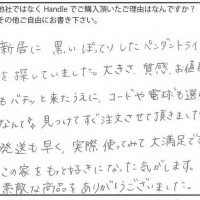 他社ではなく Handle でご購入頂いたご理由はなんですか？
その他ご自由にお書き下さい。
新居に 黒い ぽってりしたペンダントライ
を探していました。大きさ、質感、お値
もバチッと来たうえに、コードや電球も選
なんてな、見つけてすぐ注文させて頂きました
発送も早く、実際使ってみて大満足です
この家をもっと好きになった気がします。
素敵な商品をありがとうございました。